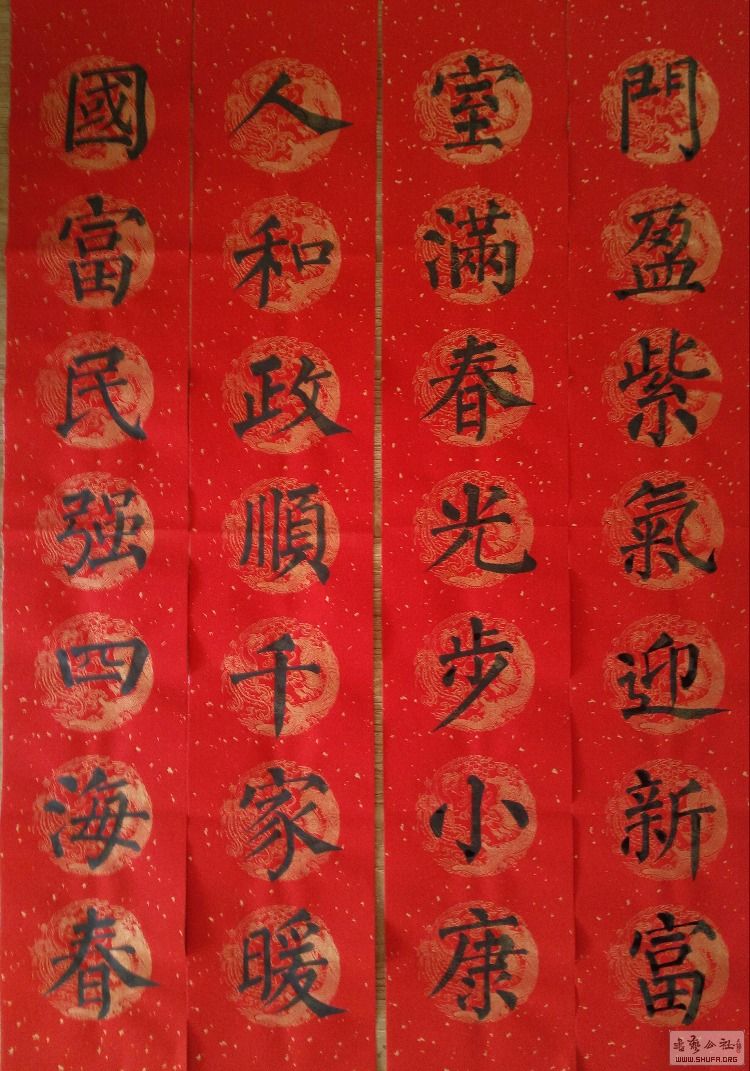 門盈紫氣迎新富
室滿春光步小康
人和政順千家暖
國富民强四海春
WWW.SHUFA.ORG